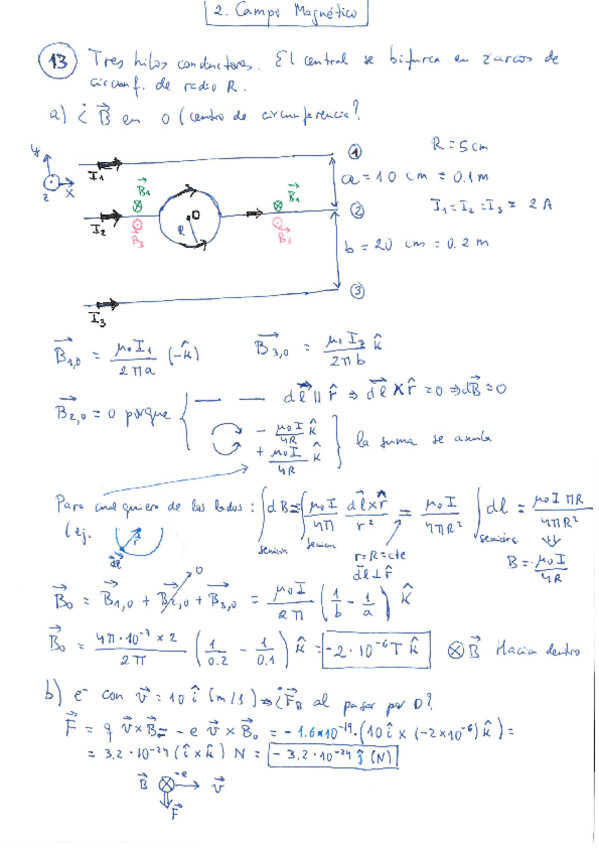 2. Campo Magnético
13 Tres hilos conductores. El central se bifurca en 2 arcos de
circunf. de radio R.
a) ¿ B⃗ en O (centro de circunferencia?
R = 5 cm
a = 10 cm = 0.1 m
I₁ = I₂ = I₃ = 2 A
b = 20 cm = 0.2 m
y z x
I₁ ①
B⃗₁ B⃗₁
I₂ R O ②
B⃗₃ B⃗₃
I₃ ③
B⃗₁,₀ = μ₀I₁/2πa (-k̂) B⃗₃,₀ = μ₀I₃/2πb k̂
B⃗₂,₀ = 0 porque { — — dl⃗ || r̂ ⇒ dl⃗ × r̂ = 0 ⇒ dB⃗ = 0
- μ₀I/4R k̂
+ μ₀I/4R k̂ } la suma se anula
Para cualquiera de los lados: ∫semicirc dB = ∫semicirc μ₀I/4π dl⃗×r̂/r² = μ₀I/4πR² ∫semicirc dl = μ₀I πR/4πR²
(ej. r̂ dl⃗
r = R = cte
dl⃗ ⊥ r̂
B = μ₀I/4R
B⃗₀ = B⃗₁,₀ + B⃗₂,₀ + B⃗₃,₀ = μ₀I/2π (1/b - 1/a) k̂
B⃗₀ = 4π·10⁻⁷ × 2/2π (1/0.2 - 1/0.1) k̂ = -2·10⁻⁶ T k̂ ⊗ B⃗ Hacia dentro
b) e⁻ con v⃗ = 10 î (m/s) ⇒ ¿F⃗_B al pasar por O?
F⃗ = q v⃗ × B⃗ = -e v⃗ × B⃗₀ = -1.6×10⁻¹⁹ · (10 î × (-2×10⁻⁶) k̂) =
= 3.2·10⁻²⁴ (î × k̂) N = -3.2·10⁻²⁴ ĵ (N)
B⃗ ⊗ -e v⃗
F⃗